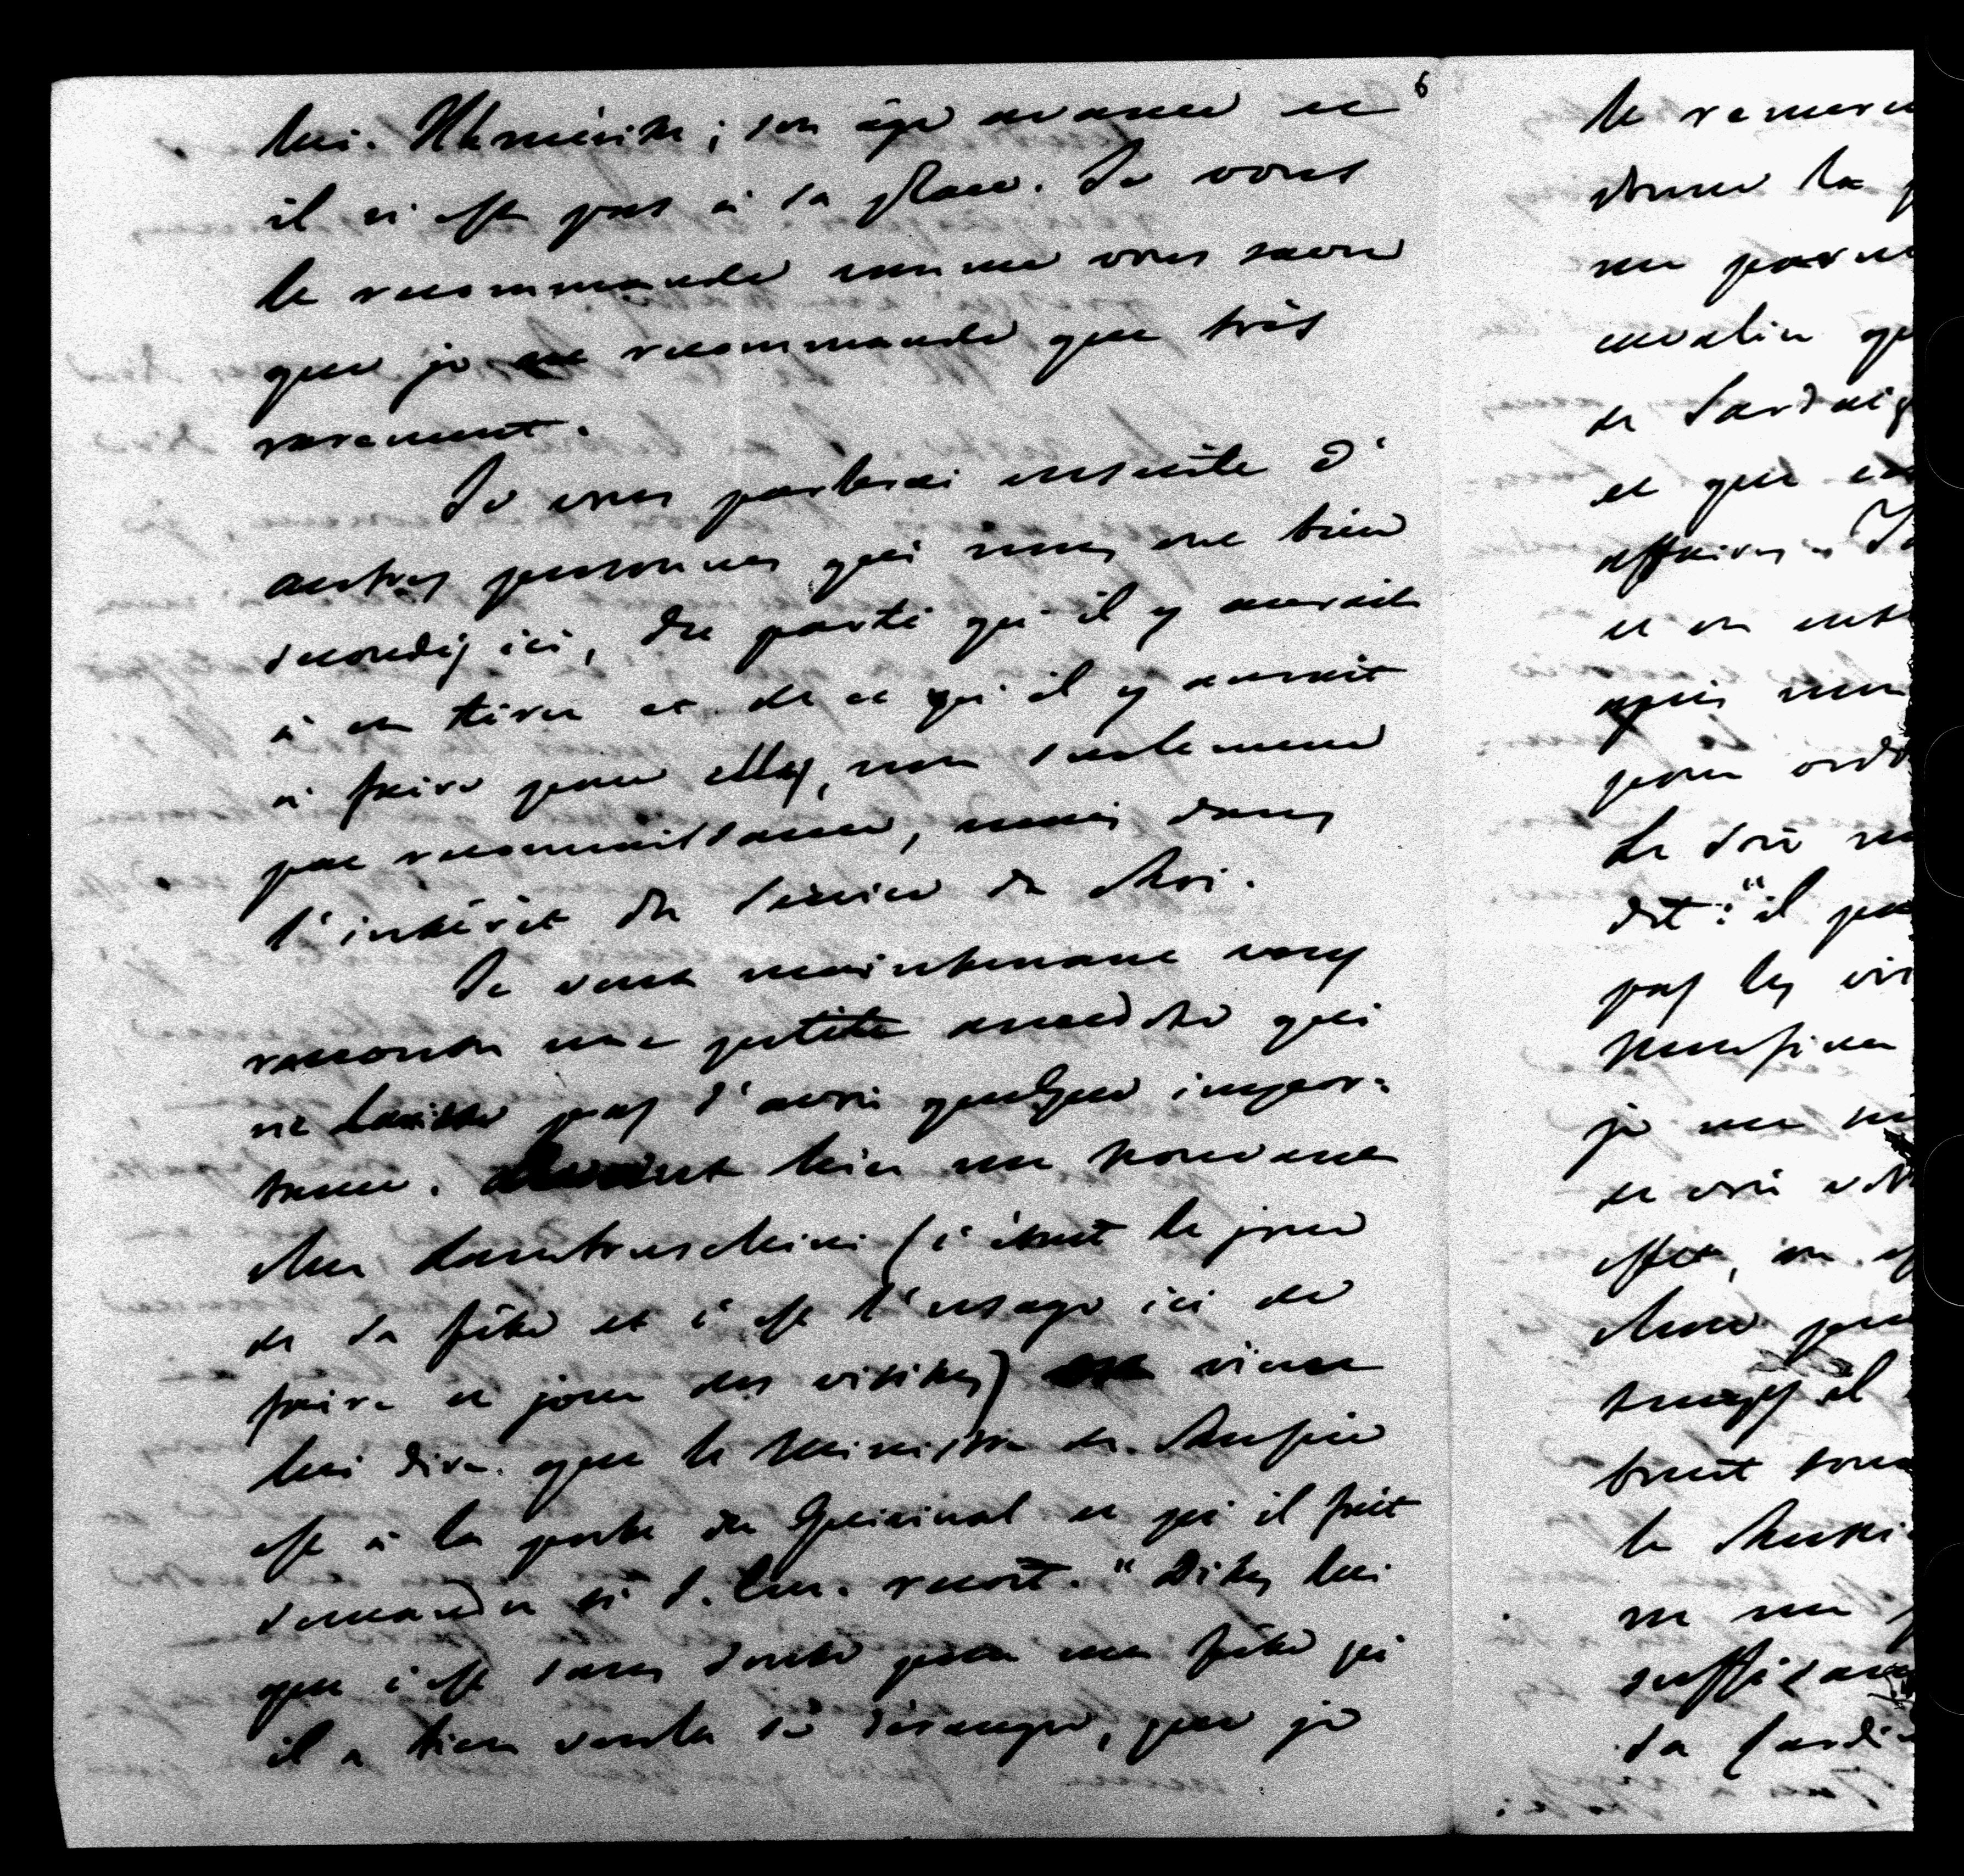 6
lui. Il le mérite ; son âge avance et
il n'est pas à sa place. Je vous
le recommande comme vous savez
que je ne recommande que très
rarement.
Je vous parlerai ensuite d'
autres personnes qui nous ont bien
secondés ici, du parti qu'il y aurait
à en tirer et de ce qu'il y aurait
à faire pour elles, non seulement
par reconnaissance, mais dans
l'intérêt du service du Roi.
Je veux maintenant vous
raconter une petite anecdote qui
ne laisse pas d'avoir quelque impor-
tance. hier me trouvant
chez Lambruschini (c'était le jour
de sa fête et c'est l'usage ici de
faire ce jour des visites) vient
lui dire que le Ministre de Russie
est à la porte du Quirinal et qu'il fait
demander si S. Em. reçoit. "Dites lui
que c'est sans doute pour ma fête qu'
il a bien voulu se déranger, que je
le remerc
donne la
me parut
malin qu
de Sardaig
et que
affaires. Je
et en
après
pour ord
Le soir
dit : "il
pas les
je me
de
effet, on
chez
temps il
bruit
le
ne me
suffisam
sa Sardai